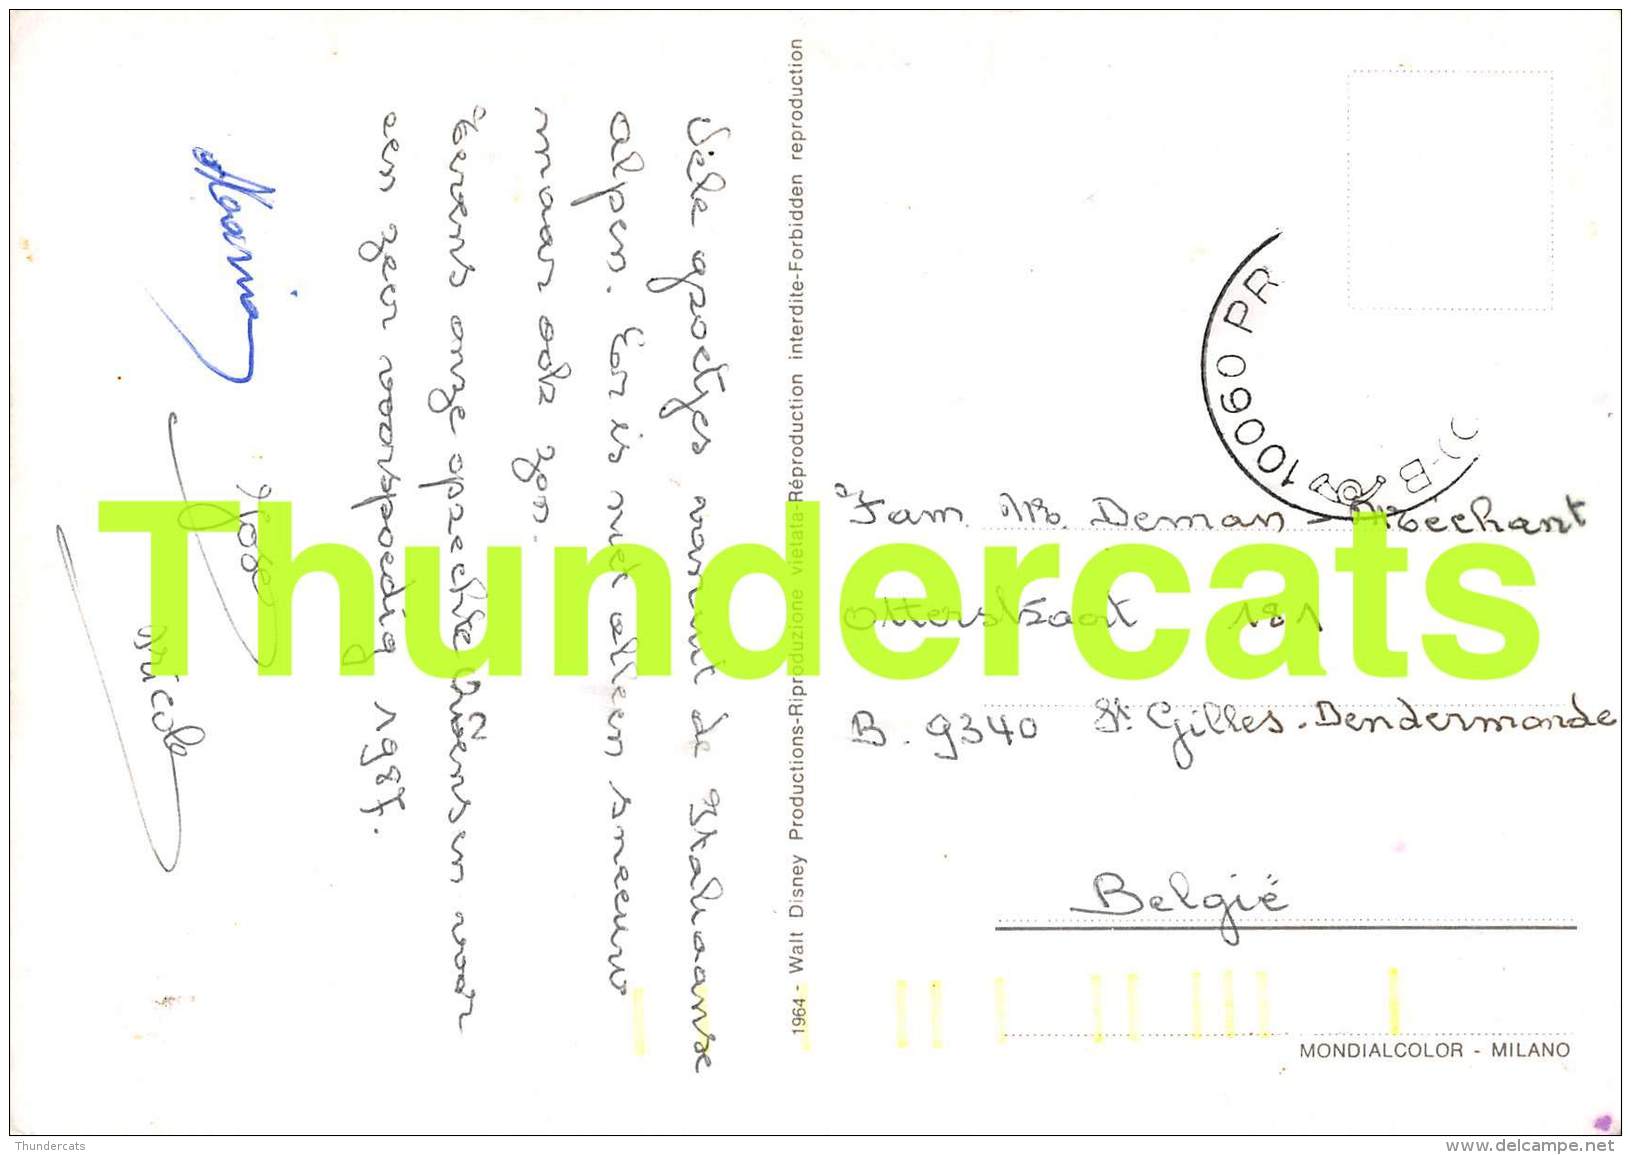 Vele groetjes vanuit de Italiaanse
alpen. Er is niet alleen sneeuw
maar ook zon.
Tevens onze oprechte wensen voor
een zeer voorspoedig 1987.
José
Nicole
1964 - Walt Disney Productions-Riproduzione vietata-Réproduction interdite-Forbidden reproduction
10060 PR
Fam. Deman -
Otterstraat 181
B. 9340 St Gilles - Dendermonde
België
MONDIALCOLOR - MILANO
Thundercats
Thundercats
www.delcampe.net